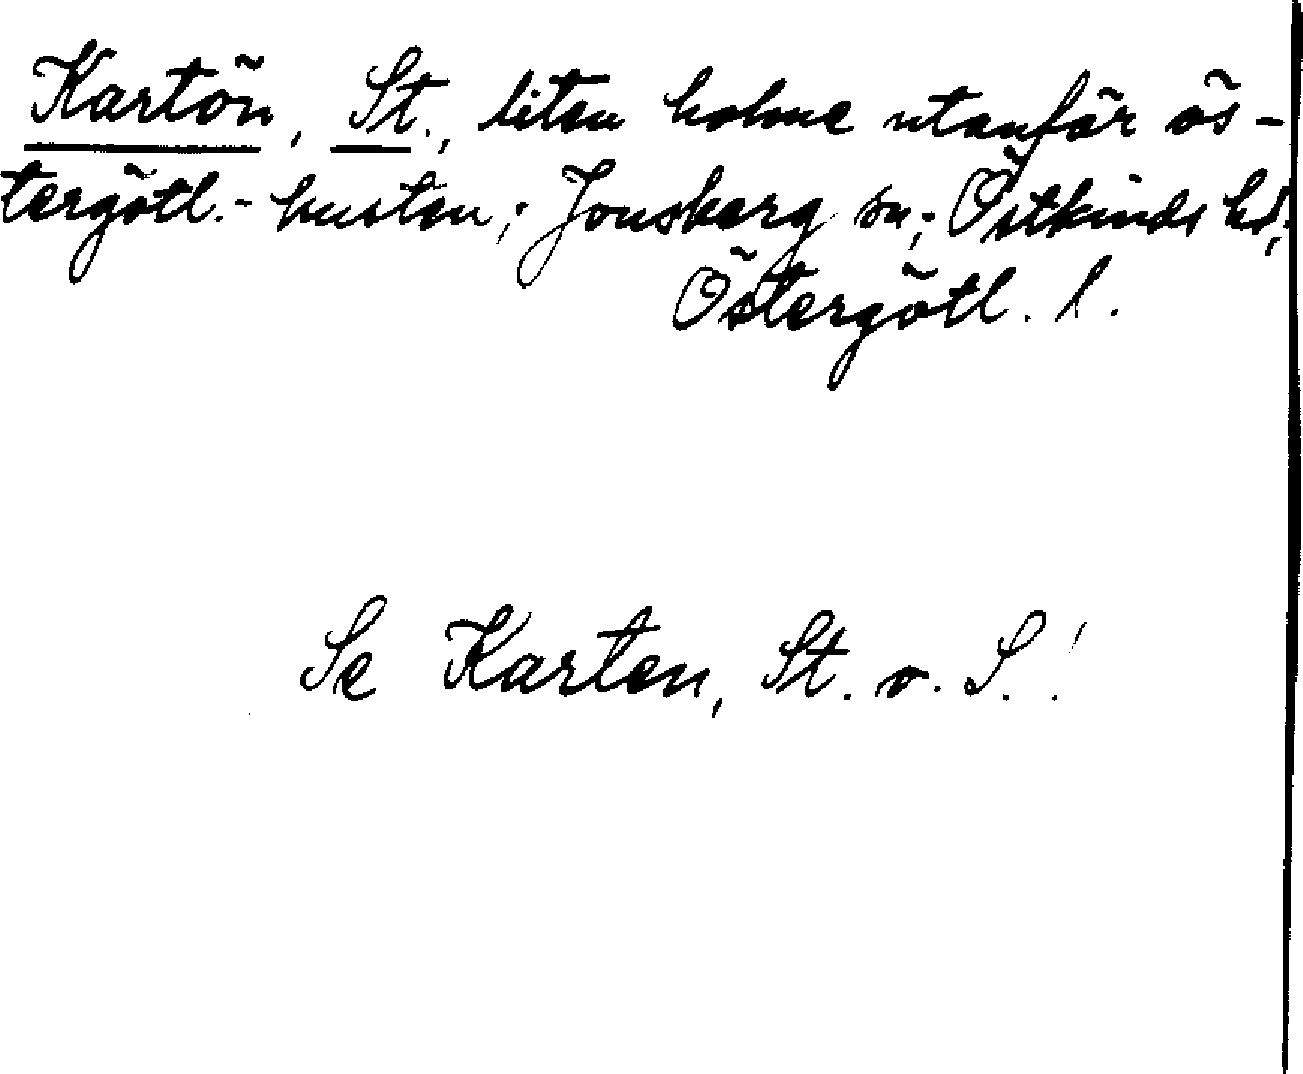 Kartön, St., liten holme utanför ös-
tergötl.-kusten; Jonsberg sn; Östkinds hd;
Östergötl. l.
Se Karten, St. o. L.!